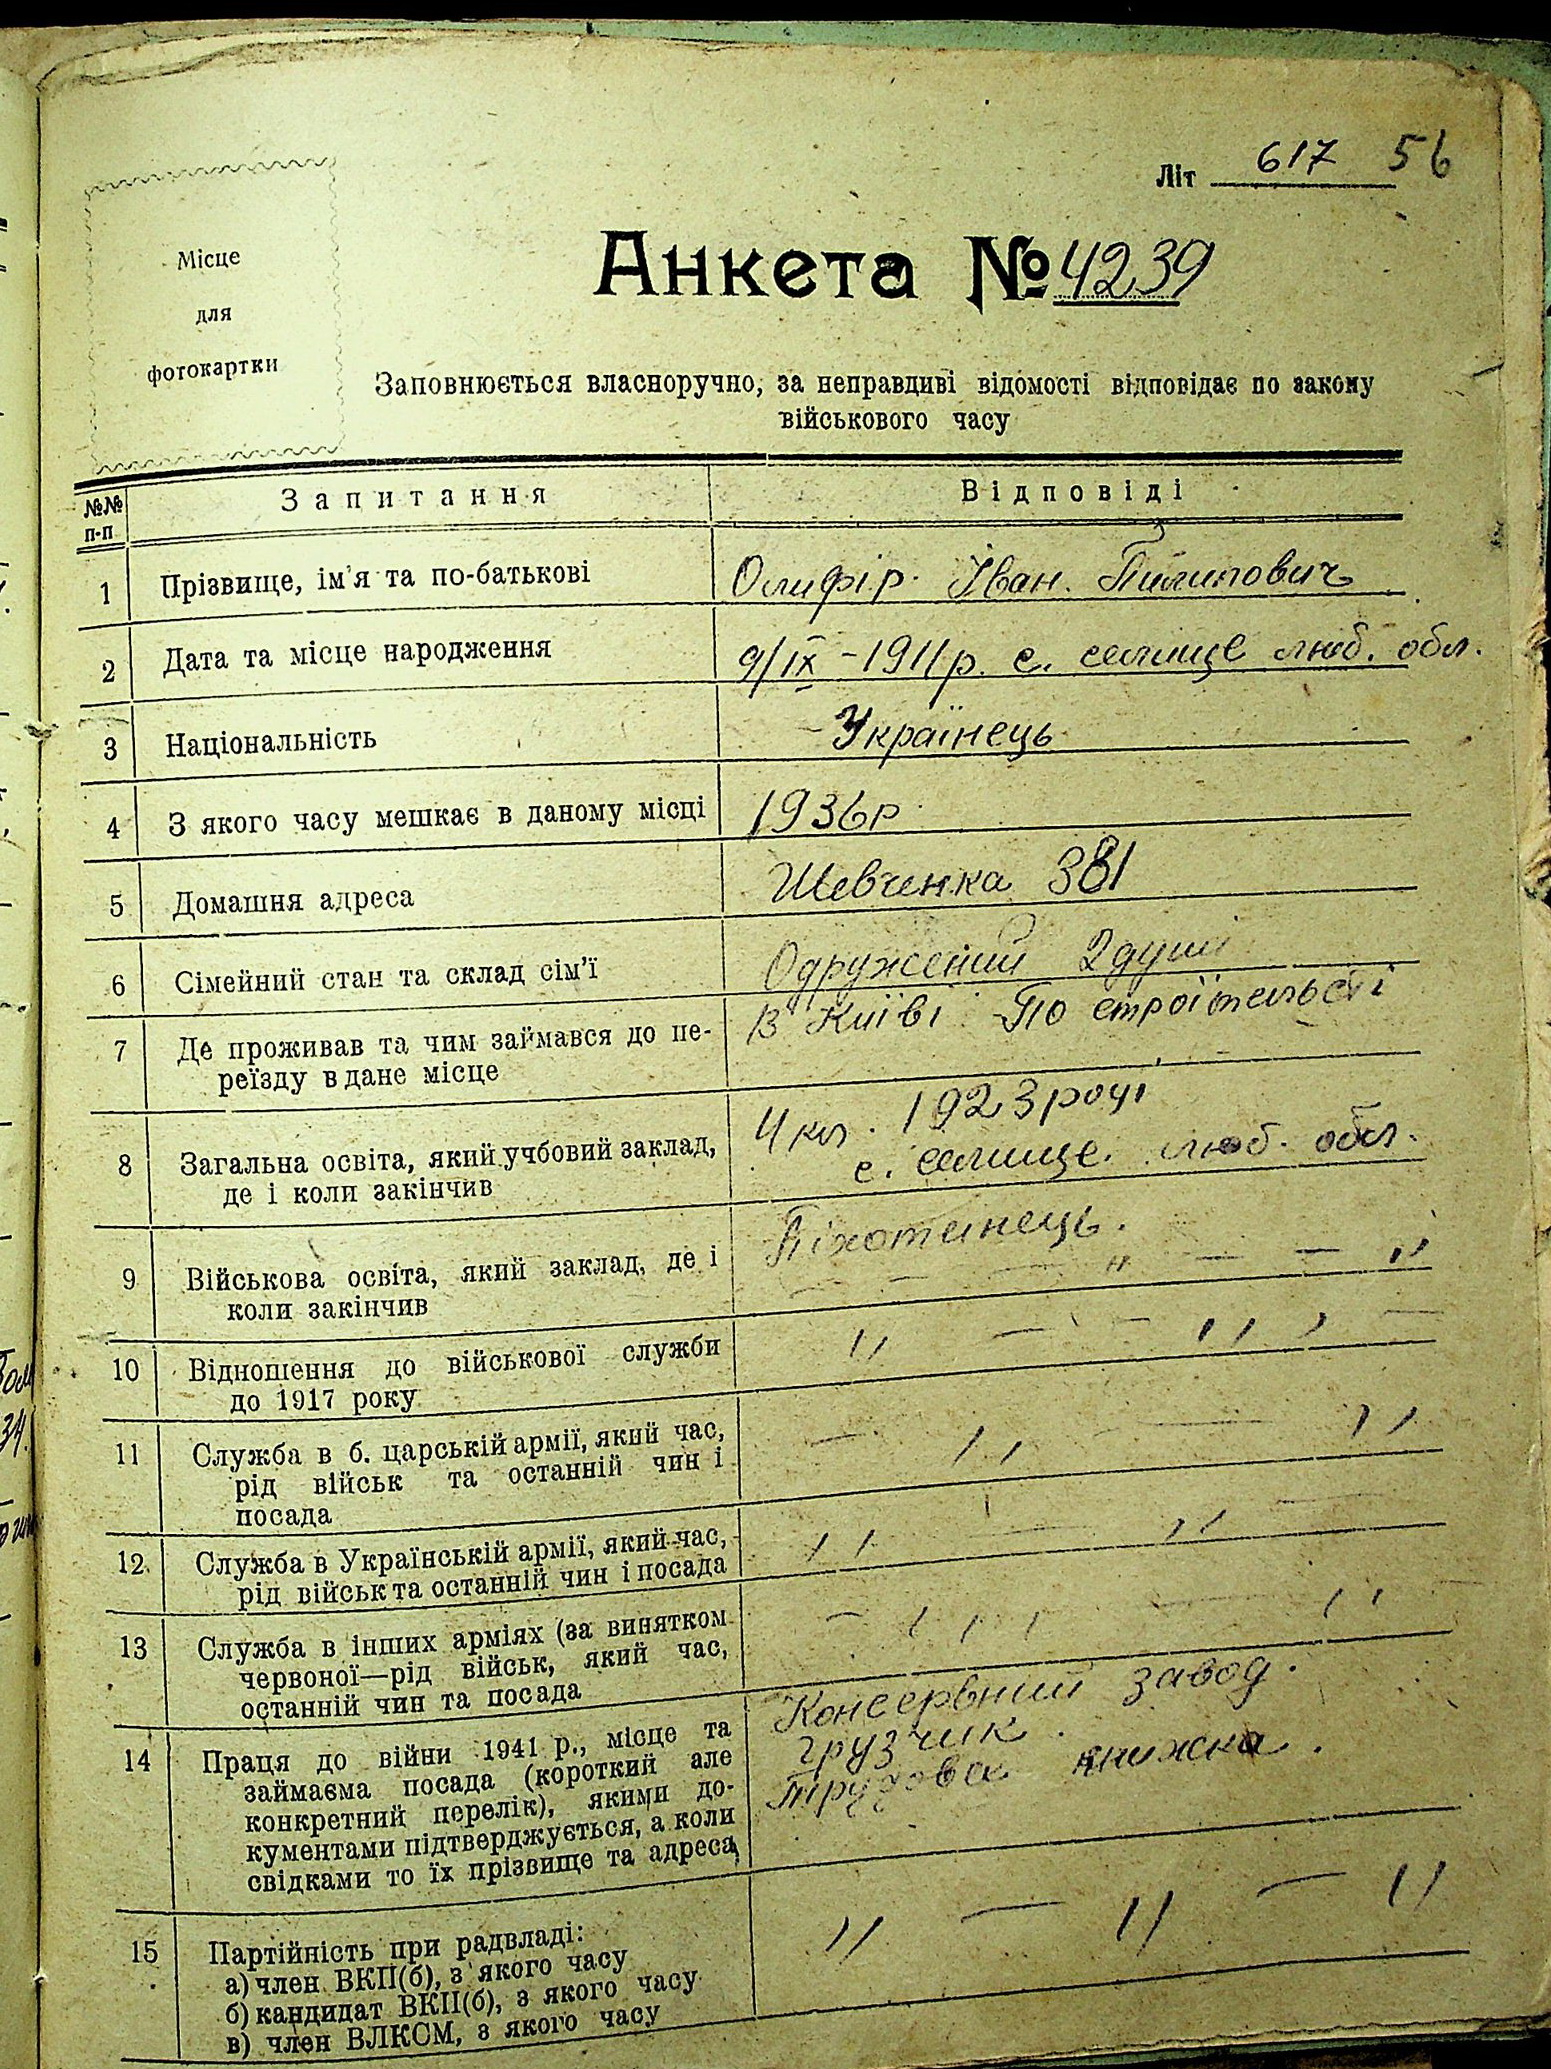 Літ 617 56
Місце
для
фотокартки
Анкета № 4239
Заповнюється власноручно, за неправдиві відомості відповідає по закону
військового часу
№№
п-п
Запитання
Відповіді
1 Прізвище, ім'я та по-батькові Олифір Іван Пилипович
2 Дата та місце народження 9/IX - 1911 р. с. селище люб. обл.
3 Національність Українець
4 З якого часу мешкає в даному місці 1936 р
5 Домашня адреса Шевченка 381
6 Сімейний стан та склад сім'ї Одружений 2 душі
7 Де проживав та чим займався до пе-
реїзду в дане місце
В Київі По строїтельсті
8 Загальна освіта, який учбовий заклад,
де і коли закінчив
4 кл. 1923 році
с. селище люб. обл.
9 Військова освіта, який заклад, де і
коли закінчив
Піхотинець.
— — — " — — "
10 Відношення до військової служби
до 1917 року
" — — " —
11 Служба в б. царській армії, який час,
рід військ та останній чин і
посада
— " — "
12 Служба в Українській армії, який час,
рід військ та останній чин і посада
" — " —
13 Служба в інших арміях (за винятком
червоної—рід військ, який час,
останній чин та посада
— " — "
14 Праця до війни 1941 р., місце та
займаєма посада (короткий але
конкретний перелік), якими до-
кументами підтверджується, а коли
свідками то їх прізвище та адреса
Консервний завод.
грузчик.
Трудова книжка.
15 Партійність при радвладі:
а) член ВКП(б), з якого часу
б) кандидат ВКП(б), з якого часу
в) член ВЛКСМ, з якого часу
" — " — "